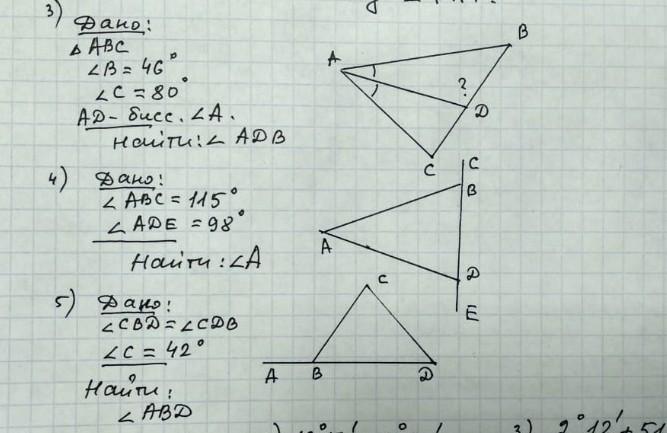 3) Дано:
△ ABC
∠B = 46°
∠C = 80°
AD - бисс. ∠A.
Найти: ∠ ADB
A
B
?
D
C
4) Дано:
∠ ABC = 115°
∠ ADE = 98°
Найти: ∠A
C
B
A
D
E
5) Дано:
∠CBD = ∠CDB
∠C = 42°
Найти:
∠ ABD
C
A B D